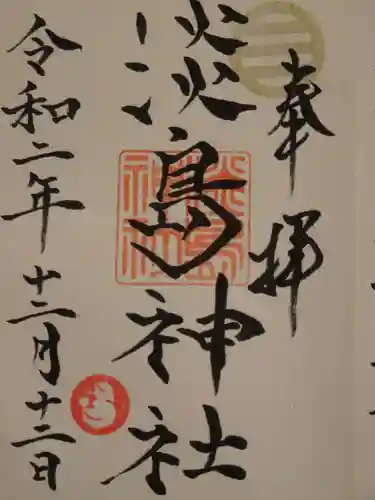 奉拝
淡島神社
令和二年十二月十二日